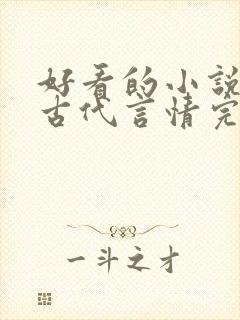 好看的小說
古代言情完
一斗之才